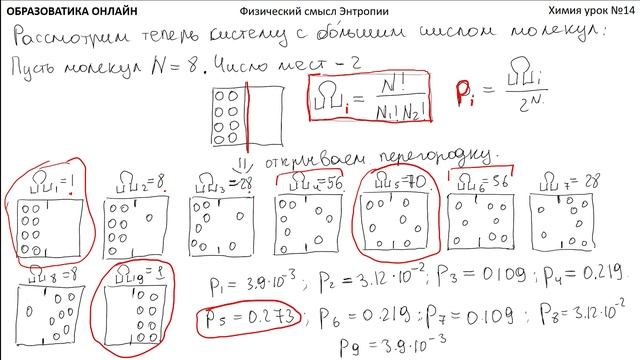 ОБРАЗОВАТИКА ОНЛАЙН Физический смысл Энтропии Химия урок №14
Рассмотрим теперь систему с бо́льшим числом молекул:
Пусть молекул N = 8. Число мест - 2
Ω i = N! / N₁! N₂! P i = Ω i / 2^N
⇓ открываем перегородку.
Ω₁=1 Ω₂=8 Ω₃=28 Ω₄=56 Ω₅=70 Ω₆=56 Ω₇=28
Ω₈=8 Ω₉=1
P₁ = 3.9·10⁻³; P₂ = 3.12·10⁻²; P₃ = 0.109; P₄ = 0.219.
P₅ = 0.273; P₆ = 0.219; P₇ = 0.109; P₈ = 3.12·10⁻²
P₉ = 3.9·10⁻³